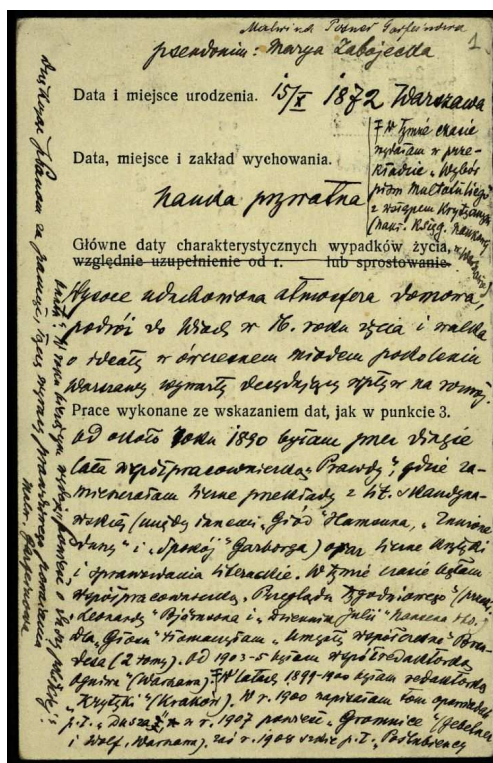 Malwina Posner Garfeinowa
pseudonim: Marya Zabojecka
1
Data i miejsce urodzenia. 15/X 1872 Warszawa
Data, miejsce i zakład wychowania.
nauka prywatna
Ŧ W tymże czasie
wydałam w prze-
kładzie „Wybór
pism Multatulego"
z wstępem krytycznym
(nakł. Księg. naukowej
w Warszawie)
Główne daty charakterystycznych wypadków życia,
względnie uzupełnienie od r. lub sprostowanie
Wysoce uduchowiona atmosfera domowa,
podróż do Włoch w 16. roku życia i walka
o ideały w ówczesnem młodem pokoleniu
Warszawy wywarły decydujący wpływ na rozwój.
Prace wykonane ze wskazaniem dat, jak w punkcie 3.
Od około roku 1890 byłam przez długie
lata współpracowniczką „Prawdy", gdzie za-
mieszczałam liczne przekłady z lit. skandyna-
wskiej (między innemi „Głód" Hamsuna, „
" i „Spokój" Garborga) oraz liczne krytyki
i sprawozdania literackie. W tymże czasie byłam
współpracowniczką „Przeglądu Tygodniowego" (
„Leonarda" Björnsona i „Dziennik Julii" Nansena itd.)
Dla „Głosu" tłumaczyłam „Umysły współczesne" Bran-
desa (2 tomy). Od 1903-5 byłam współredaktorką
Ogniwa (Warszawa). Ŧ W latach 1899-1900 byłam redaktorką
„Krytyki" (Kraków). W r. 1900 napisałam tom opowiadań
p.t. „Dusza", w r. 1907 powieść „Gromnice" (Gebethner
i Wolf, Warszawa), zaś r. 1908 szkic p.t.
Dziękując Panom za pamięć, łączę wyrazy prawdziwego poważania
Malw. Garfeinowa